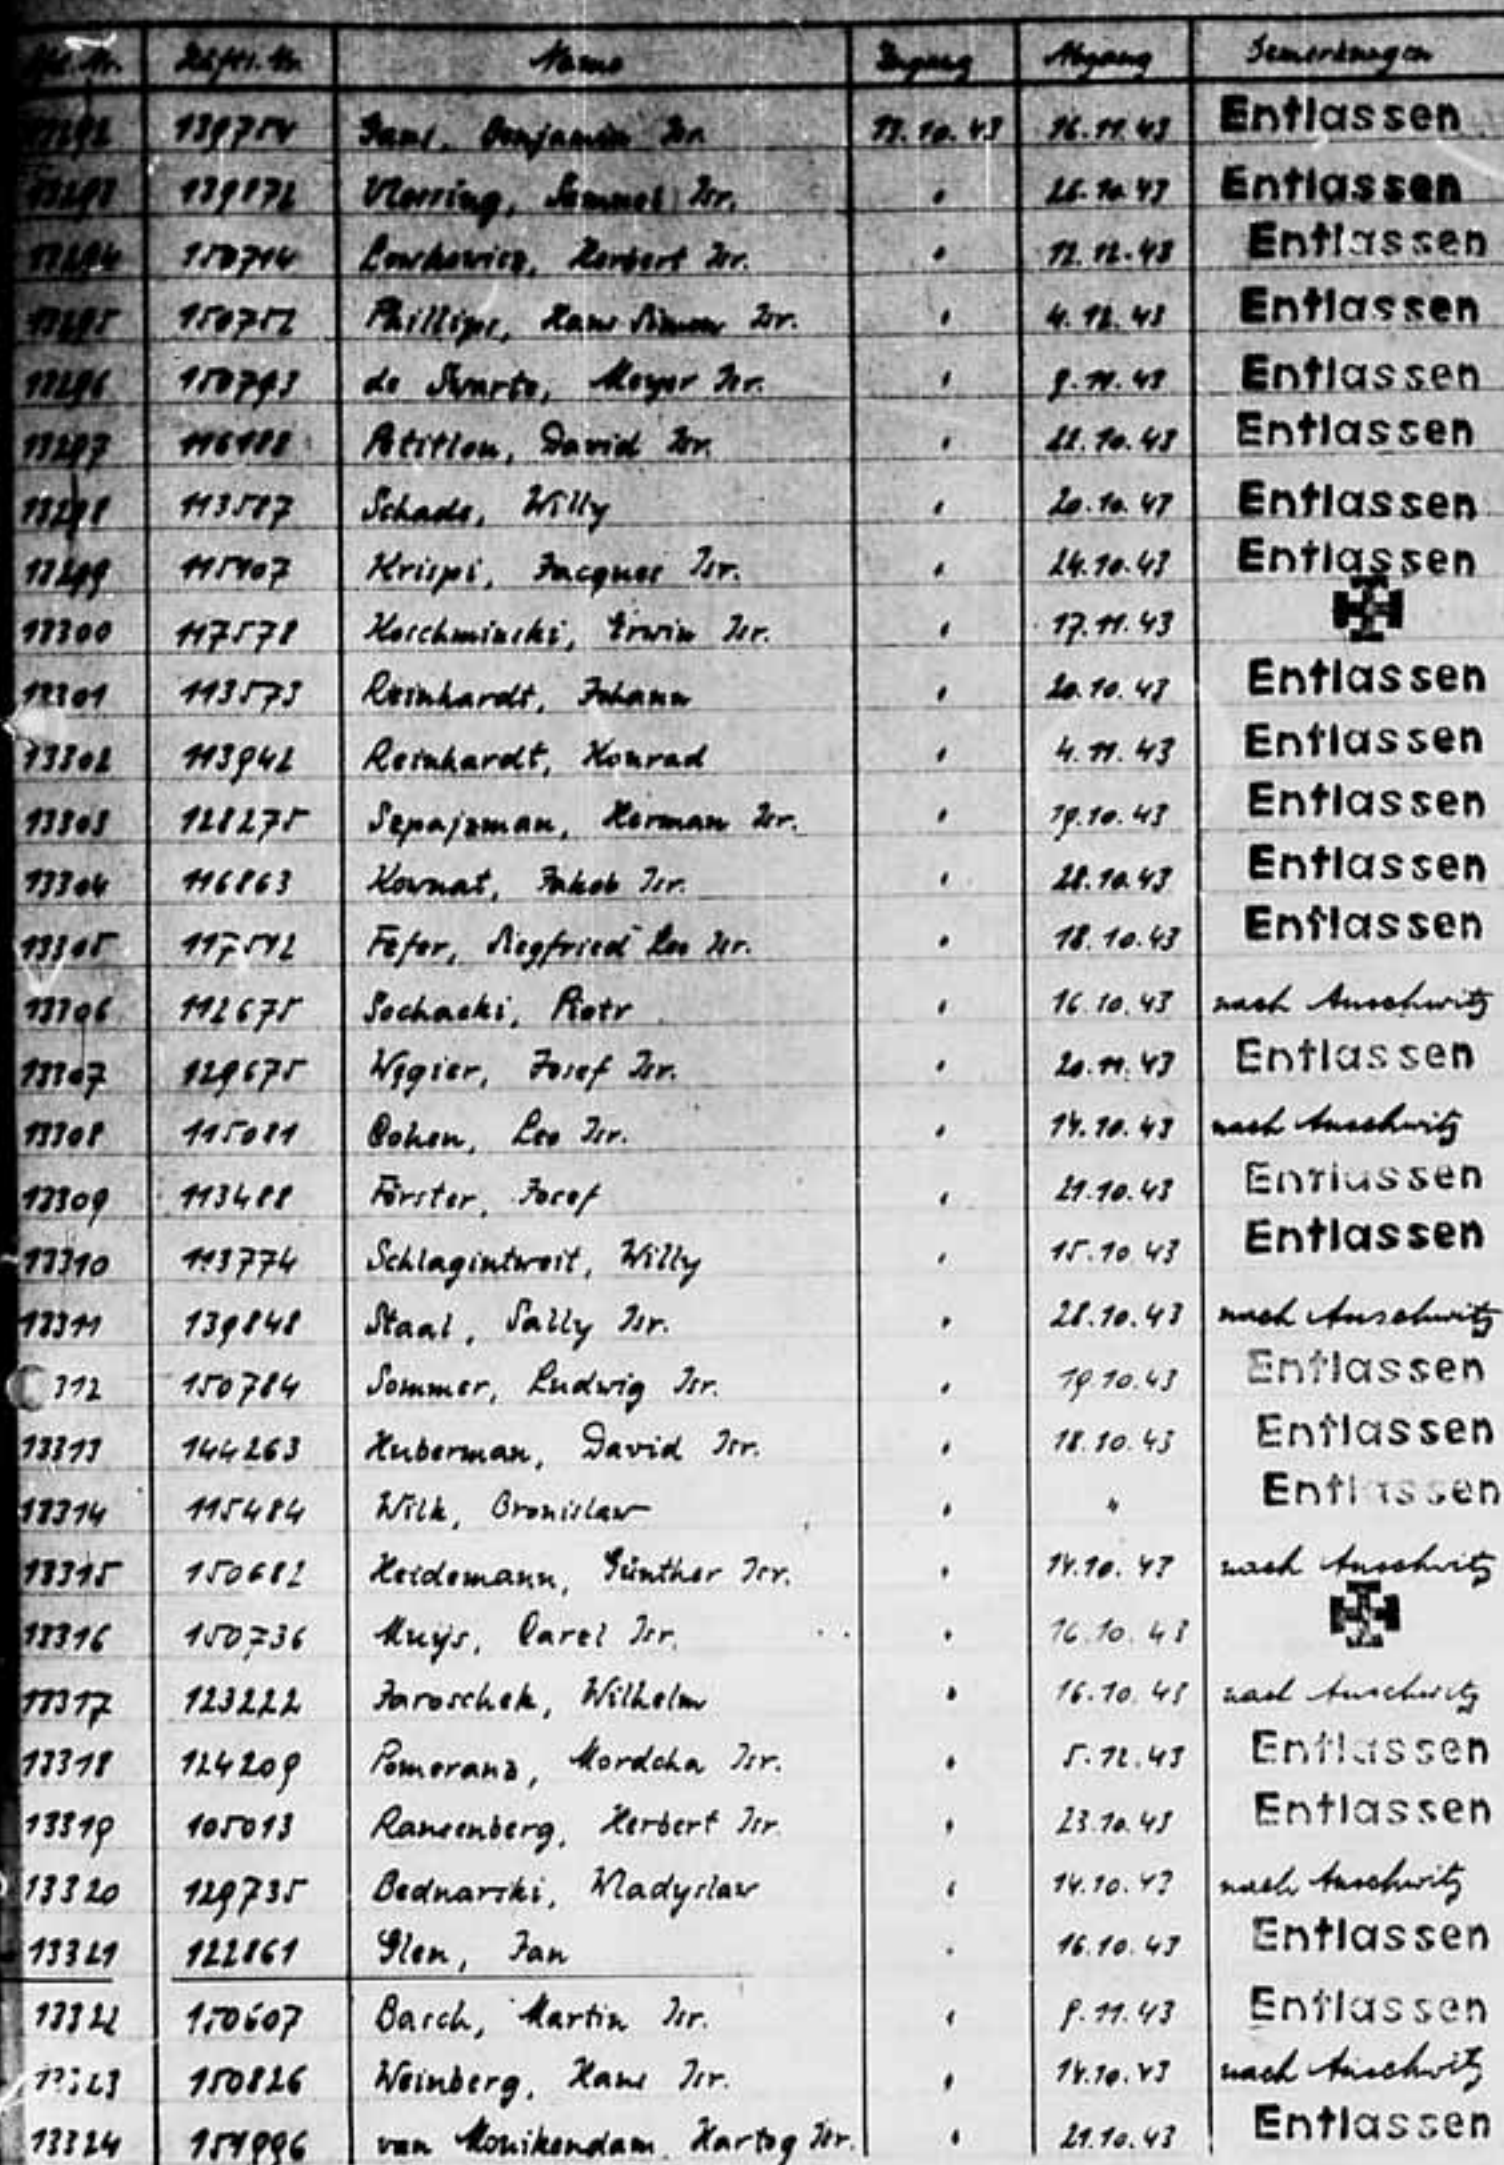 Lfd. Nr. Häftl. Nr. Name Zugang Abgang Bemerkungen
13292 139754 Benjamin Isr. 13.10.43 16.11.43 Entlassen
13293 139872 Isr. " 26.10.43 Entlassen
13294 150714 Herbert Isr. " 12.12.43 Entlassen
13295 150752 Phillips, Hans Simon Isr. " 4.12.43 Entlassen
13296 150793 de Swarte, Meyer Isr. " 9.11.43 Entlassen
13297 116188 David Isr. " 22.10.43 Entlassen
13298 113587 Schade, Willy " 20.10.43 Entlassen
13299 115107 Krispi, Jacques Isr. " 24.10.43 Entlassen
13300 117578 Koschminski, Erwin Isr. " 17.11.43
13301 113573 Reinhardt, Johann " 20.10.43 Entlassen
13302 113942 Reinhardt, Konrad " 4.11.43 Entlassen
13303 128275 Szpajzman, Herman Isr. " 19.10.43 Entlassen
13304 116863 Kownat, Jakob Isr. " 28.10.43 Entlassen
13305 117512 Fefer, Siegfried Leo Isr. " 18.10.43 Entlassen
13306 112675 Sochacki, Piotr " 16.10.43 nach Auschwitz
13307 129675 Wygier, Josef Isr. " 20.11.43 Entlassen
13308 115081 Cohen, Leo Isr. " 14.10.43 nach Auschwitz
13309 113488 Förster, Josef " 21.10.43 Entlassen
13310 113774 Schlagintweit, Willy " 15.10.43 Entlassen
13311 139848 Staal, Sally Isr. " 28.10.43 nach Auschwitz
312 150784 Sommer, Ludwig Isr. " 19.10.43 Entlassen
13313 144263 Huberman, David Isr. " 18.10.43 Entlassen
13314 115484 Wilk, Bronislaw " " Entlassen
13315 150682 Heidemann, Günther Isr. " 14.10.43 nach Auschwitz
13316 150736 Muijs, Carel Isr. " 16.10.43
13317 123222 Jaroschek, Wilhelm " 16.10.43 nach Auschwitz
13318 124209 Pomeranz, Mordcha Isr. " 5.12.43 Entlassen
13319 105013 Ransenberg, Herbert Isr. " 23.10.43 Entlassen
13320 129735 Bednarski, Wladyslaw " 14.10.43 nach Auschwitz
13321 122861 Glen, Jan " 16.10.43 Entlassen
13322 150607 Basch, Martin Isr. " 9.11.43 Entlassen
13323 150826 Weinberg, Hans Isr. " 14.10.43 nach Auschwitz
13324 151996 van Monikendam, Hartog Isr. " 21.10.43 Entlassen